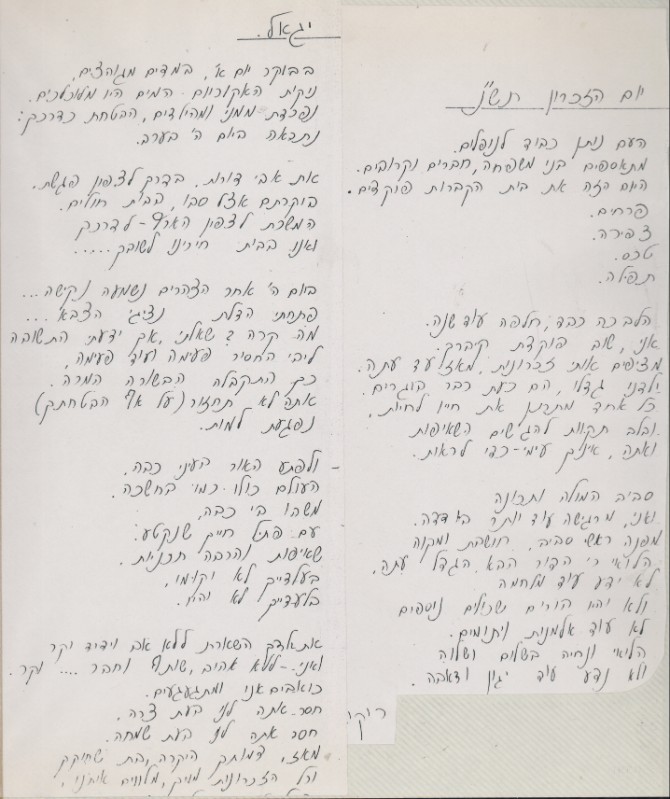 יגאל.
בבוקר יום א', במדים מגוהצים,
ניקית האקווריום - המים היו מלוכלכים.
נפרדת ממני ומהילדים, הבטחת כדרכך:
נתראה ביום ה' בערב.
את אבי דורות. בדרך לצפון פגשת.
ביקרתם אצל סבו, בבית חולים.
המשכת לצפון הארץ - לדרכך
ואנו בבית חיכינו לשובך.....
ביום ה' אחר הצהרים נשמעה נקישה...
פתחתי הדלת נציגי הצבא...
מה קרה? שאלתי, אך ידעתי התשובה
ליבי החסיר פעימה ועוד פעימה,
כך התקבלה הבשורה המרה.
אתה לא תחזור (על אף הבטחתך)
נפגעת למות.
ולפתע האור בעיני כבה.
העולם כולו כמו בחשכה.
משהו בי כבה,
עם פתיל חייך שנקטע.
שאיפות והרבה תכניות.
בעלדיך לא יקוימו,
בלעדיך לא יהיו.
את ילדיך השארת ללא אב וידיד יקר
ואני - ללא אהוב, שותף וחבר .... יקר.
כואבים אנו ומתגעגעים.
חסר אתה לנו בעת צרה.
חסר אתה לנו בעת שמחה.
מאז, דמותך היקרה, בת שחוקך
וכל הזכרונות ממך, מלווים אותנו,
יום הזכרון תש"ן
העם נותן כבוד לנופלים.
מתאספים בני משפחה, חברים וקרובים.
היום הזה את בית הקברות פוקדים.
פרחים.
צפירה.
טכס.
תפילה.
הלב כה כבד, חלפה עוד שנה.
אני, שוב פוקדת קיברך.
מציפים אותי זכרונות, מאז ועד עתה.
ילדנו גדלו, הם כעת כבר בוגרים.
כל אחד מתכנן את חייו לחיות,
ובלב תקוות להגשים השאיפות
ואתה, אינך עימי - כדי לראות.
סביב המולה ותכונה
ואני, מרגישה עוד יותר בודדה.
מפנה ראשי סביב, חושבת ומקוה
הלואי כי הדור הבא, הגדל עתה,
לא ידע עוד מלחמה
ולא יהיו הורים שכולים נוספים
לא עוד אלמנות ויתומים.
הלואי ונחיה בשלום ושלוה
ולא נדע עוד יגון ודאבה.